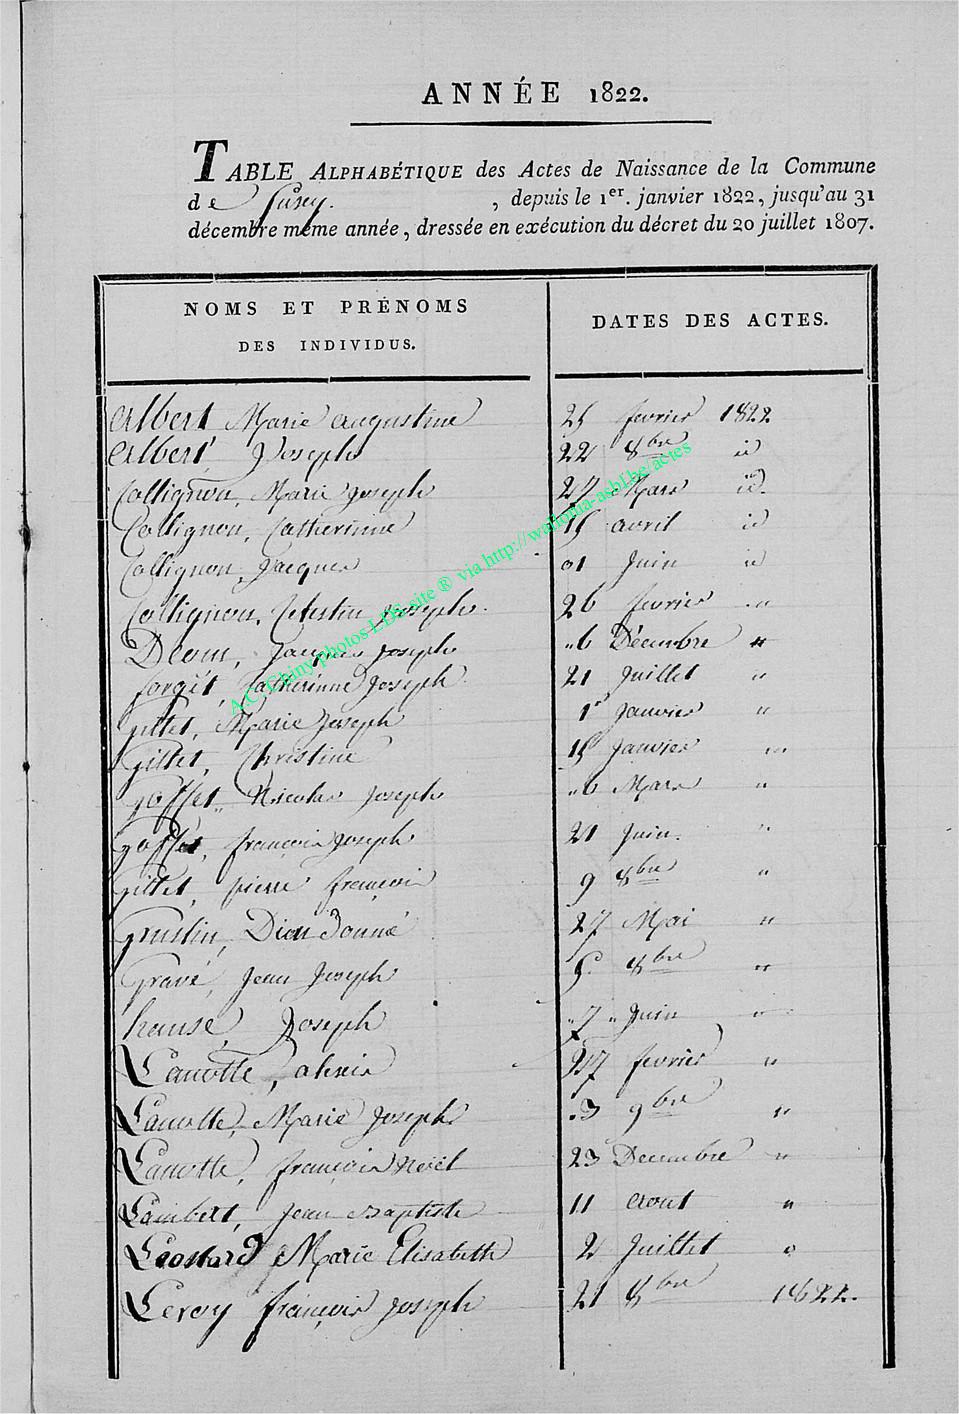 ANNÉE 1822.
TABLE ALPHABÉTIQUE des Actes de Naissance de la Commune
de , depuis le 1er. janvier 1822, jusqu'au 31
décembre même année, dressée en exécution du décret du 20 juillet 1807.
NOMS ET PRÉNOMS
DES INDIVIDUS.
DATES DES ACTES.
Albert Marie Augustine 25 fevrier 1822
Albert, Joseph 22 8bre id
Collignon, Marie Joseph 27 Mars id.
Collignon, Catherinne 15 avril id
Collignon, Jacques 01 Juin id
Collignon, Celestin Joseph. 26 fevrier "
Deom, Jacques Joseph "6 Décembre "
forgèt, Catherinne Joseph. 21 Juillet "
Gillet, Marie Joseph 1r Janvier "
Gillet, Christine 15 Janvier "
goffet, Nicolas Joseph "6 Mars "
goffet, françois Joseph 21 Juin. "
Gillet, pierre françois 9 8bre "
Grustin, Dieudonné 27 Mai "
Gravé, Jean Joseph 5. 8bre "
hause, Joseph "7 " Juin "
Lamotte, alexis 27 fevrier "
Lamotte, Marie Joseph .3 9bre "
Lamotte, françois Noël 23 Decembre "
Lambert, Jean Baptiste 11 Aout "
Marie Elisabeth 2 Juillet "
Leroy françois Joseph 21 8bre 1822.
A.C. Chiny photos LDS site ® via http://wallonia-asbl.be/actes